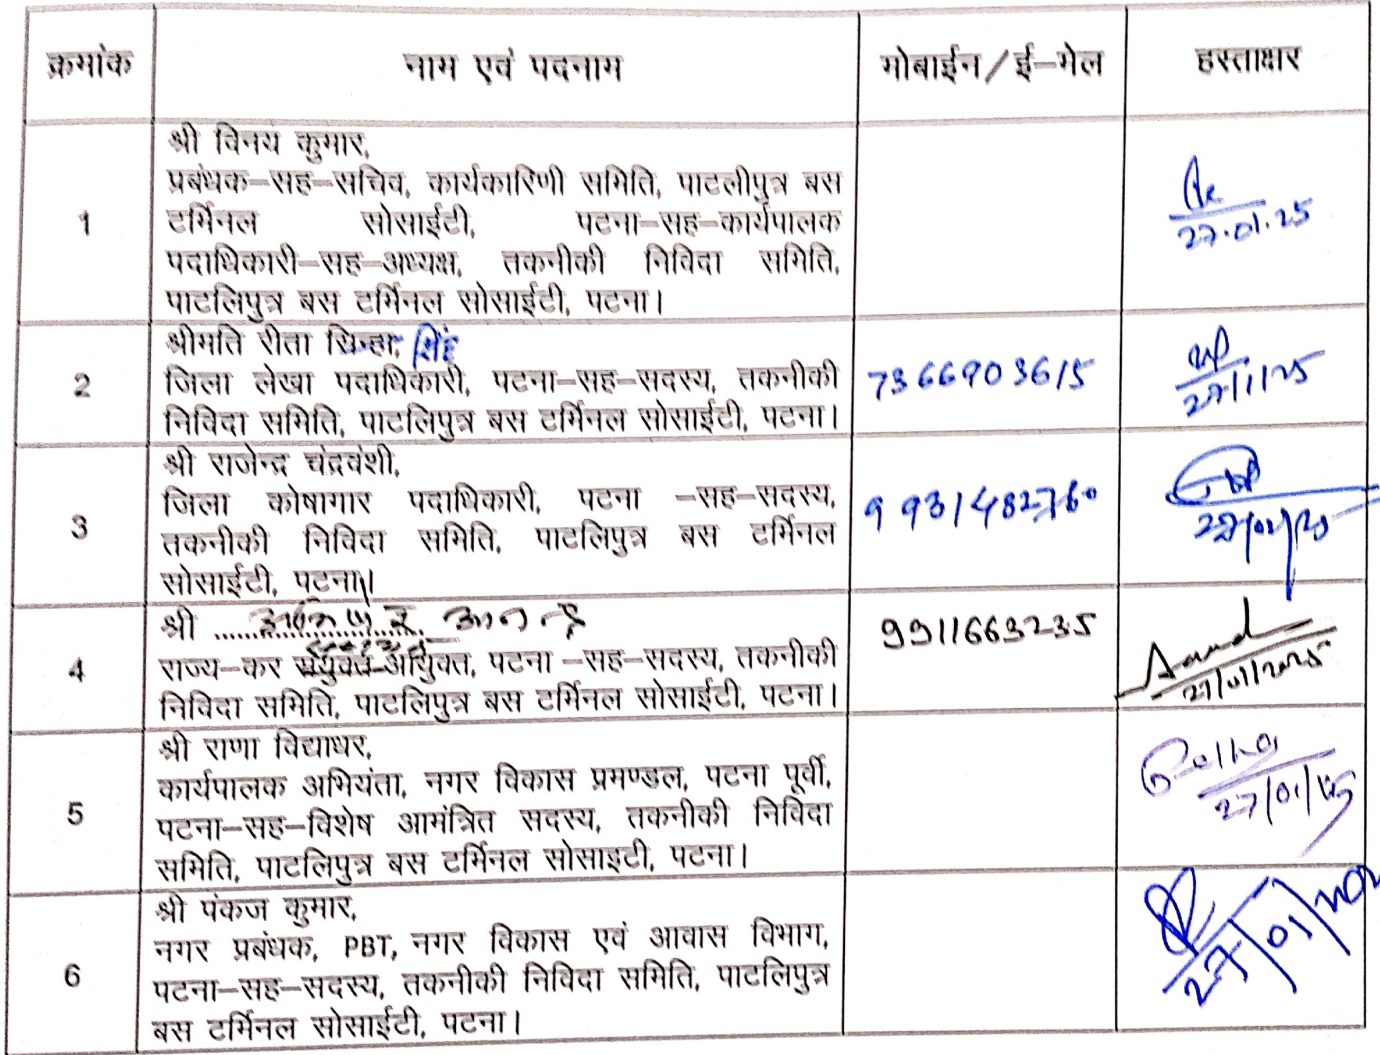 क्रमांक नाम एवं पदनाम मोबाईन/ई-मेल हस्ताक्षर
1
श्री विनय कुमार,
प्रबंधक-सह-सचिव, कार्यकारिणी समिति, पाटलीपुत्र बस
टर्मिनल सोसाईटी, पटना-सह-कार्यपालक
पदाधिकारी-सह-अध्यक्ष, तकनीकी निविदा समिति,
पाटलिपुत्र बस टर्मिनल सोसाईटी, पटना।
27.01.25
2
श्रीमति रीता सिन्हा, सिंह
जिला लेखा पदाधिकारी, पटना-सह-सदस्य, तकनीकी
निविदा समिति, पाटलिपुत्र बस टर्मिनल सोसाईटी, पटना।
7366903615
27/1/25
3
श्री राजेन्द्र चंद्रवंशी,
जिला कोषागार पदाधिकारी, पटना -सह-सदस्य,
तकनीकी निविदा समिति, पाटलिपुत्र बस टर्मिनल
सोसाईटी, पटना।
9931482760
27/01/25
4
श्री ........ आनन्द
राज्य-कर संयुक्त आयुक्त, पटना -सह-सदस्य, तकनीकी
निविदा समिति, पाटलिपुत्र बस टर्मिनल सोसाईटी, पटना।
9911663235
Anand
27/01/2025
5
श्री राणा विद्याधर,
कार्यपालक अभियंता, नगर विकास प्रमण्डल, पटना पूर्वी,
पटना-सह-विशेष आमंत्रित सदस्य, तकनीकी निविदा
समिति, पाटलिपुत्र बस टर्मिनल सोसाइटी, पटना।
27/01/25
6
श्री पंकज कुमार,
नगर प्रबंधक, PBT, नगर विकास एवं आवास विभाग,
पटना-सह-सदस्य, तकनीकी निविदा समिति, पाटलिपुत्र
बस टर्मिनल सोसाईटी, पटना।
27/01/202